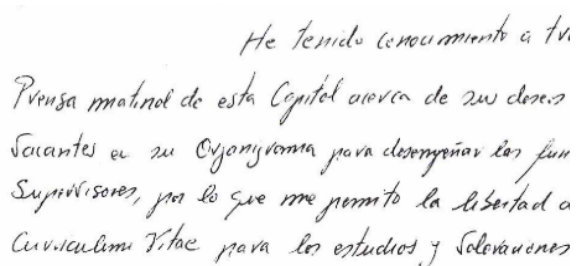 He tenido conocimiento a tra
Prensa matinal de esta Capital acerca de su deseo
Vacantes en su Organigrama para desempeñar las fun
Supervisores, por lo que me permito la libertad d
Curriculum Vitae para los estudios y Valoraciones